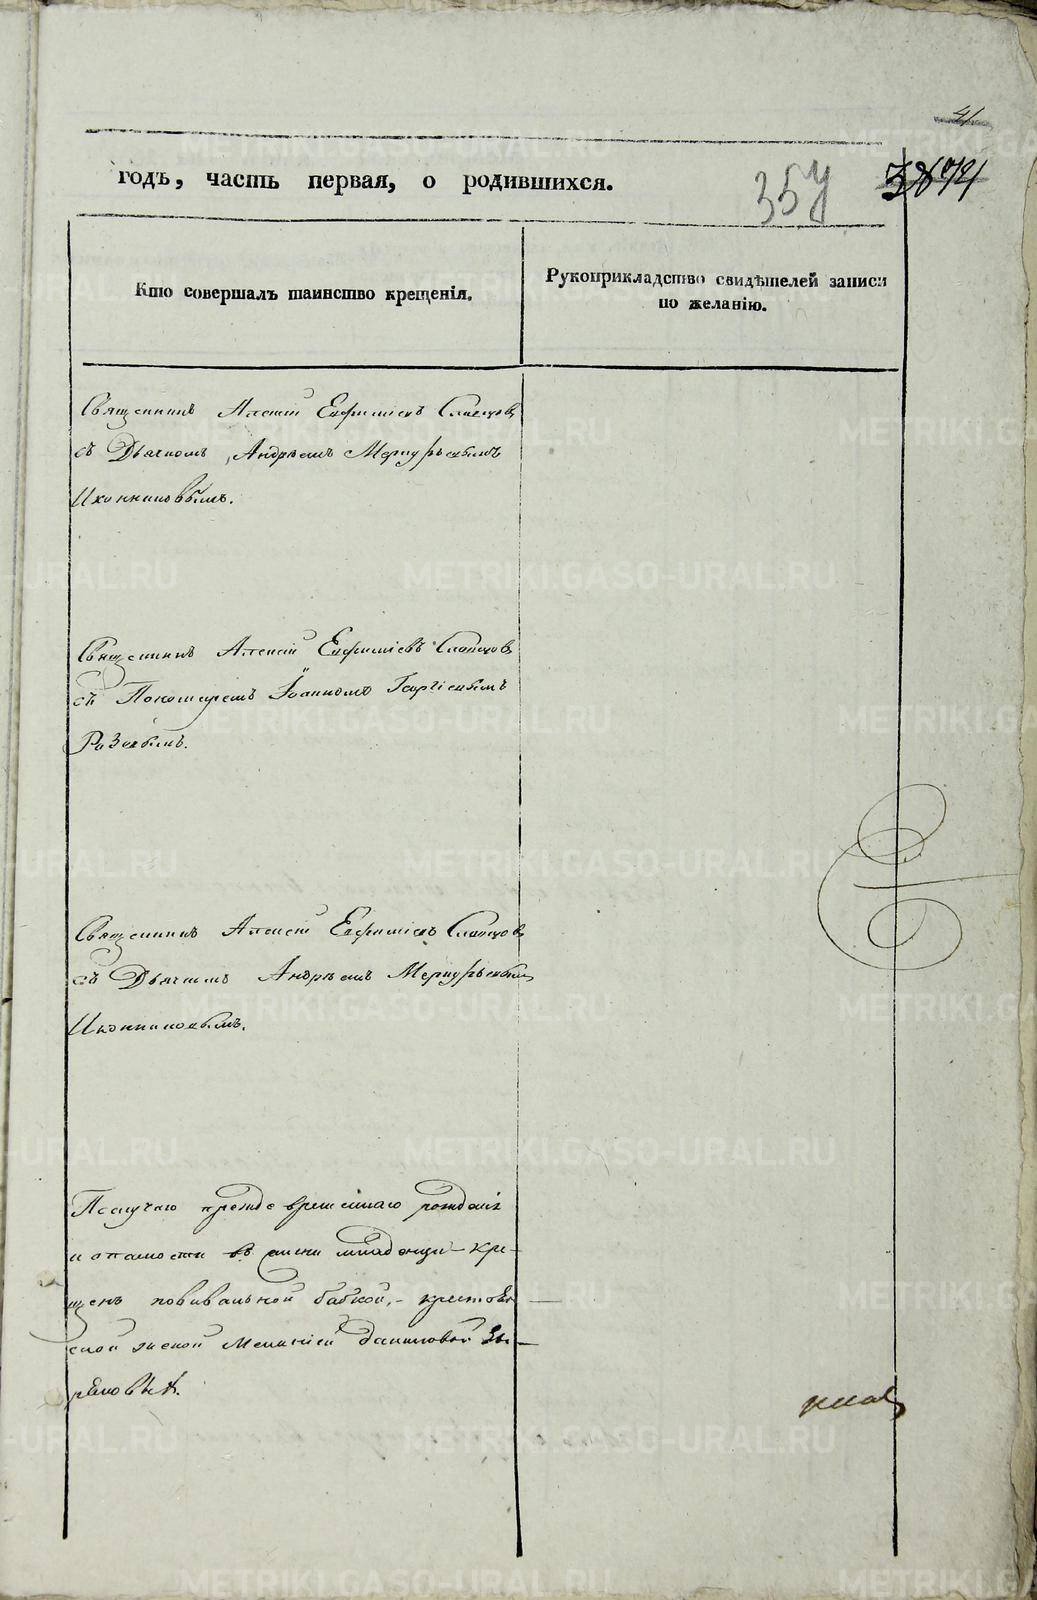 41
годъ, часть первая, о родившихся.
Кто совершалъ таинство крещенія.
Рукоприкладство свидѣтелей записи
по желанію.
Священникъ Алексій Евфиміевъ Словцовъ
съ Дьячкомъ Андрѣемъ Меркурьевымъ
Иконниковымъ.
Священникъ Алексій Евфиміевъ Словцовъ
съ Пономаремъ Іоанномъ Георгіевымъ
Священникъ Алексій Евфиміевъ Словцовъ
съ Дьячкомъ Андрѣемъ Меркурьевымъ
Иконниковымъ.
По случаю прежде временнаго рожденія
и опасности въ жизни младенца кре-
щенъ повивальной бабкой, крестьян
ской женой Меланіей Даниловой Зы-
ряновых.
METRIKI.GASO-URAL.RU